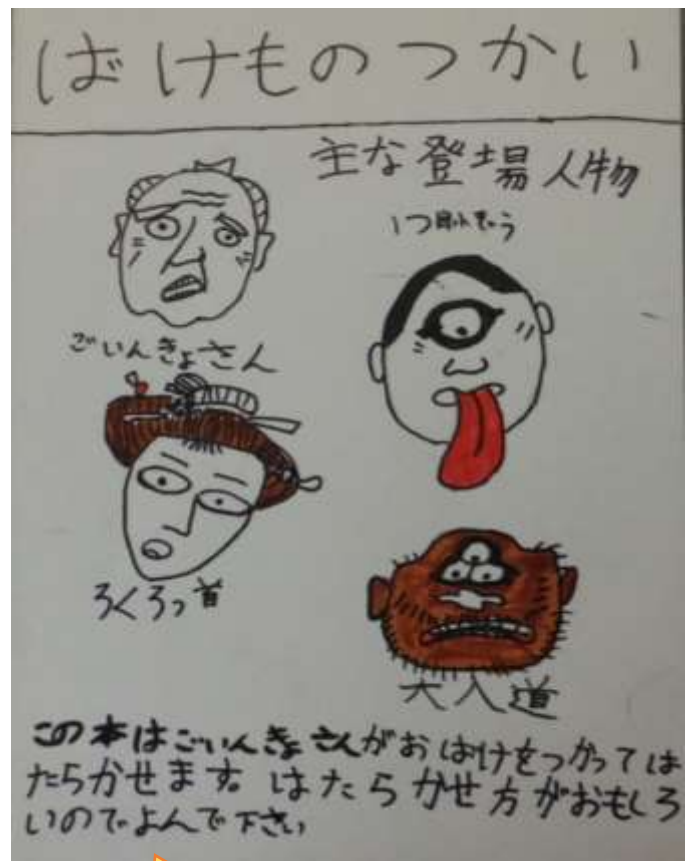 ばけものつかい
主な登場人物
1つ目小ぞう
ごいんきょさん
ろくろっ首
大入道
この本はごいんきょさんがおばけをつかっては
たらかせます。はたらかせ方がおもしろ
いのでよんで下さい